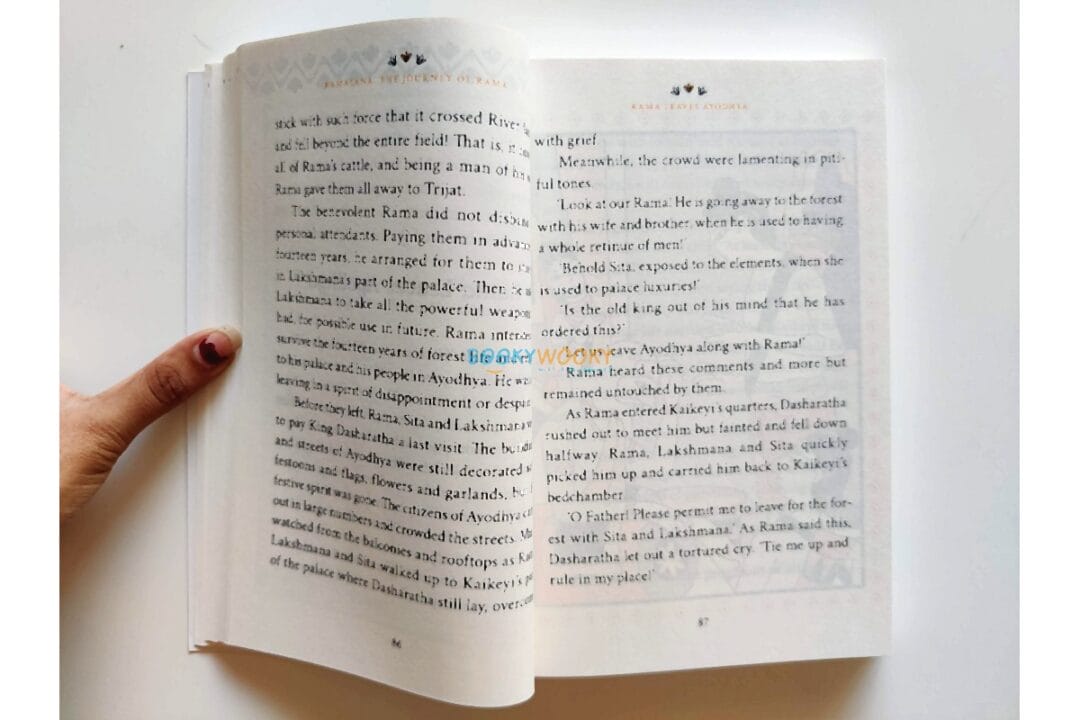 RAMAYANA: THE JOURNEY OF RAMA
stick with such force that it crossed River
and fell beyond the entire field! That is,
all of Rama's cattle, and being a man of his
Rama gave them all away to Trijat.
The benevolent Rama did not
personal attendants. Paying them in
fourteen years, he arranged for them to
in Lakshmana's part of the palace. Then he
Lakshmana to take all the powerful
had, for possible use in future. Rama
survive the fourteen years of forest life and
to his palace and his people in Ayodhya. He
leaving in a spirit of disappointment or
Before they left, Rama, Sita and Lakshmana
to pay King Dasharatha a last visit. The
and streets of Ayodhya were still decorated
festoons and flags, flowers and garlands,
festive spirit was gone. The citizens of Ayodhya
out in large numbers and crowded the streets.
watched from the balconies and rooftops as
Lakshmana and Sita walked up to Kaikeyi's
of the palace where Dasharatha still lay,
86
RAMA LEAVES AYODHYA
with grief.
Meanwhile, the crowd were lamenting in piti-
ful tones.
'Look at our Rama! He is going away to the forest
with his wife and brother, when he is used to having
a whole retinue of men!'
'Behold Sita, exposed to the elements, when she
is used to palace luxuries!'
'Is the old king out of his mind that he has
ordered this?'
'Let us leave Ayodhya along with Rama!'
Rama heard these comments and more but
remained untouched by them.
As Rama entered Kaikeyi's quarters, Dasharatha
rushed out to meet him but fainted and fell down
halfway. Rama, Lakshmana and Sita quickly
picked him up and carried him back to Kaikeyi's
bedchamber.
'O Father! Please permit me to leave for the for-
est with Sita and Lakshmana.' As Rama said this,
Dasharatha let out a tortured cry. 'Tie me up and
rule in my place!'
87
BOOKYWOOKY